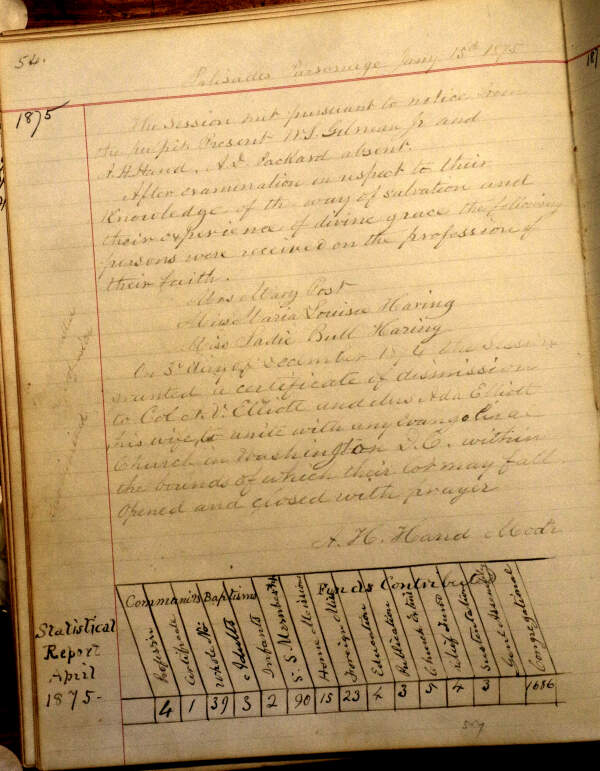 54.
Palisades Parsonage Jany 15th 1875
1875
The Session met pursuant to notice from
the pulpit Present W.S. Gilman Jr and
A.H. Hand, A.D. Packard absent.
After examination in respect to their
Knowledge of the way of salvation and
their experience of divine grace the following
persons were received on the profession of
their faith.
Mrs Mary Post
Miss Maria Louisa Haring
Miss Sadie Bull Haring
On 3d day of December 1874 the Session
granted a certificate of dismission
to Col Elliott and Mrs Ada Elliott
his wife to unite with any Evangelical
Church in Washington D.C. within
the bounds of which their lot may fall
Opened and closed with prayer
A. H. Hand Modr
Statistical
Report
April
1875-
Communi's Baptisms Funds Contributed
Certificate Whole No. Adults Infants S.S. Membership Home Mission Foreign Miss Education Publication Church Sustentation Genl Assembly Congregational
4 1 39 3 2 90 15 23 4 3 5 4 3 1686